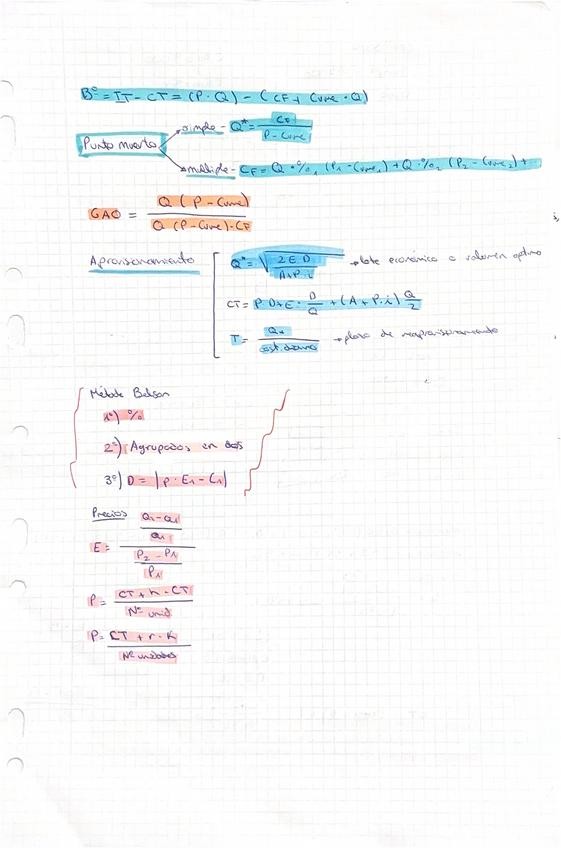 Bº = IT - CT = (P · Q) - (CF + Cvme · Q)
Punto muerto
simple - Q* = CF / P - Cvme
múltiple - CF = Q · %₁ (P₁ - Cvme₁) + Q · %₂ (P₂ - Cvme₂) + ...
GAO = Q (P - Cvme) / Q (P - Cvme) - CF
Aprovisionamiento
Q* = √ 2 E D / A + P · i → lote económico o volumen óptimo
CT = P · D + E · D / Q + (A + P · i) Q / 2
T = Q* / → plazo de reaprovisionamiento
Método Belson
1º) %
2º) Agrupados en dos
3º) D = |p · E₁ - C₁|
Precios
E = Q₁ - Q₁ / Q₁ / P₂ - P₁ / P₁
P = CT + h · CT / Nº unid
P = CT + r · K / Nº unidades